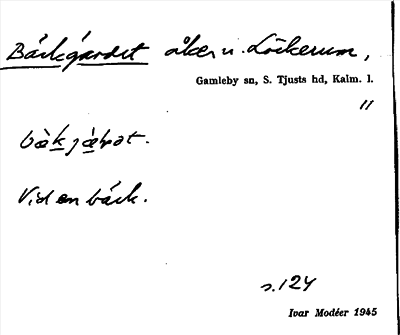 Bäckgärdet åker u. Löckerum,
Gamleby sn, S. Tjusts hd, Kalm. l.
11
Vid en bäck.
s. 124
Ivar Modéer 1945